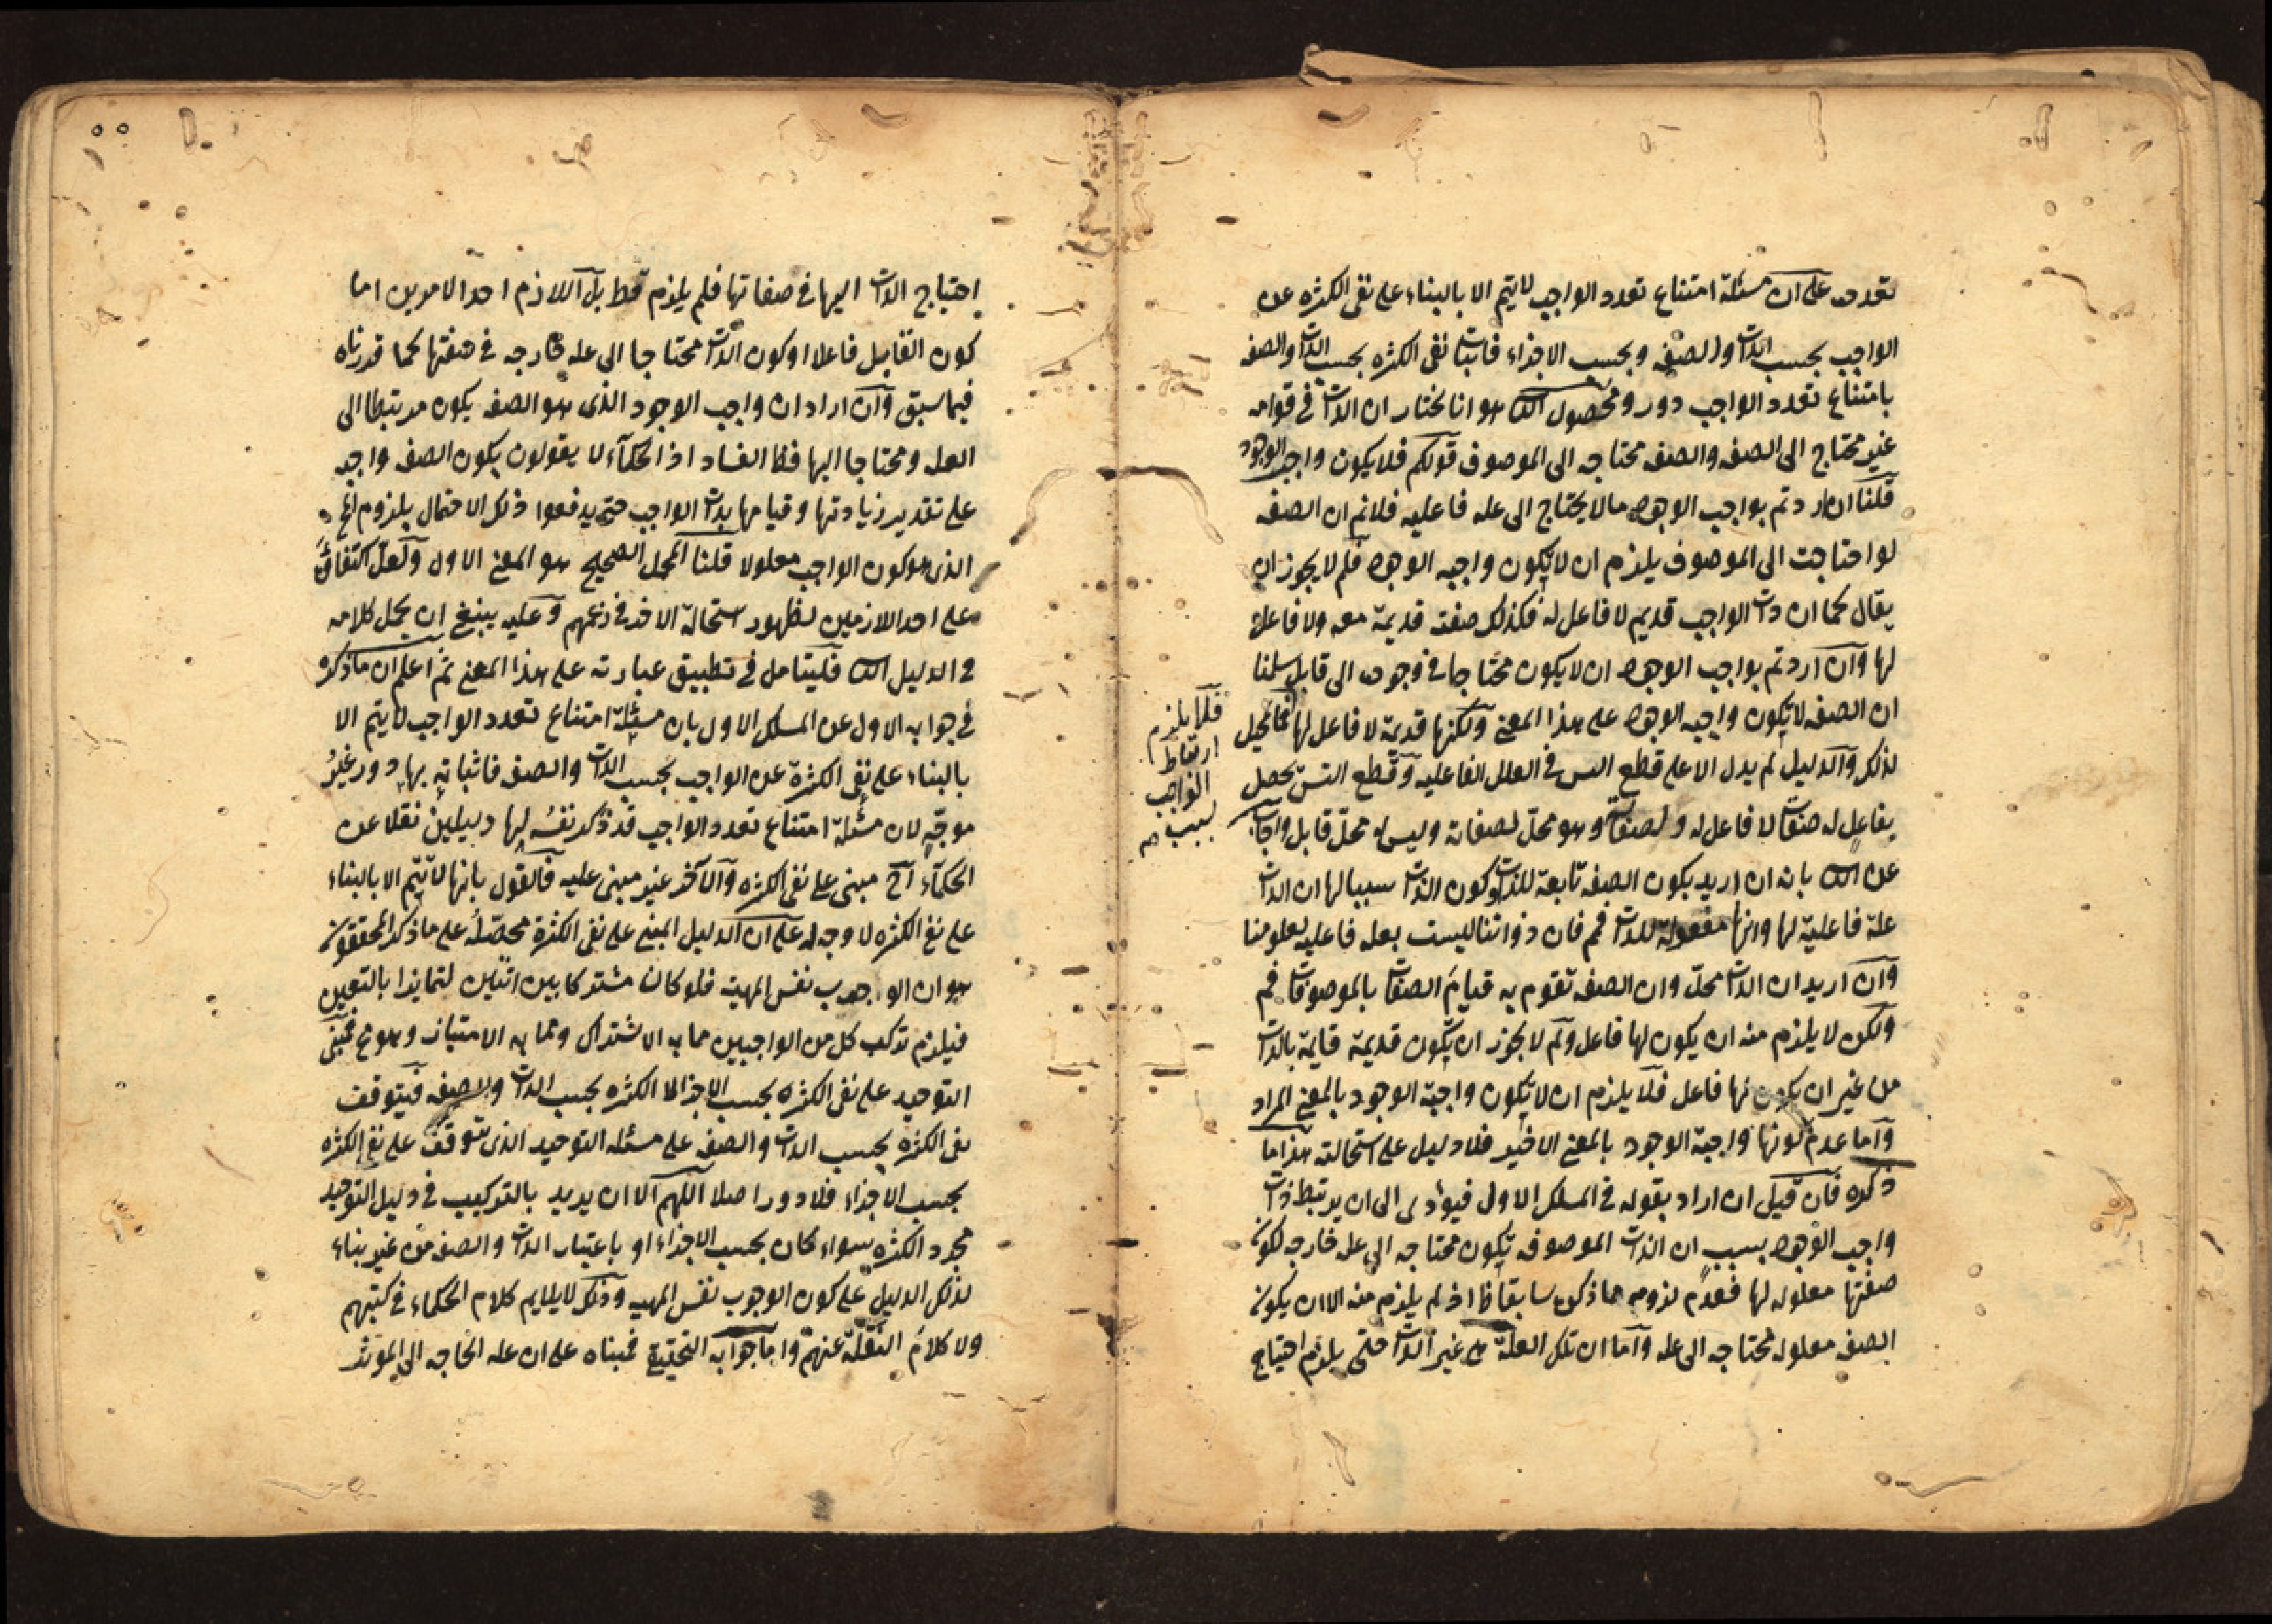 تعدده على ان مسئلة امتناع تعدد الواجب لا يتم الا بالبناء على نفى الكثره عن
الواجب بحسب الذات والصفه وبحسب الاجزاء فاثبات نفى الكثره بحسب الذات والصفه
بامتناع تعدد الواجب دور ومحصول هو انا نختار ان الذات فى قوامه
غير محتاج الى الصفه والصفه محتاجه الى الموصوف قولكم فلا يكون واجب الوجود
قلنا ان اردتم بواجب الوجود مالا يحتاج الى عله فاعليه فلانم ان الصفه
لو احتاجت الى الموصوف يلزم ان لا يكون واجبه الوجود فلم لا يجوز ان
يقال كما ان ذات الواجب قديم لا فاعل له فكذلك صفته قديمة معه ولا فاعل
لها وان اردتم بواجب الوجود ان لا يكون محتاجا فى وجوده الى قابل سلمنا
ان الصفه لا يكون واجبه الوجود على هذا المعنى ولكنها قديمة لا فاعل لها فما المحيل
لذلك والدليل لم يدل الا على قطع التس فى العلل الفاعليه وقطع التس يحصل
بفاعل له صفات لا فاعل له ولصفاته وهو محل لصفاته وليس له محل قابل واجاب
عن بانه ان اريد بكون الصفه تابعة للذات وكون الذات سببا لها ان الذات
علة فاعلية لها وانها مفعولة للذات فم فان ذواتنا ليست بعله فاعليه لعلومنا
وان اريد ان الذات محل وان الصفه تقوم به قيام الصفات بالموصوفات فم
ولكن لا يلزم منه ان يكون لها فاعل ولم لا يجوز ان يكون قديمة قايمة بالذات
من غير ان يكون لها فاعل فلا يلزم ان لا يكون واجبة الوجود بالمعنى المراد
واما عدم كونها واجبة الوجود بالمعنى الاخير فلا دليل على استحالته هذا ما
ذكره فان قيل ان اراد بقوله فى المسلك الاول فيؤدى الى ان يرتبط ذات
واجب الوجود بسبب ان الذات الموصوفه يكون محتاجه الى عله خارجه لكون
صفتها معلوله لها فعدم لزومه مما ذكره سابقا ظ اذ لم يلزم منه الا ان يكون
الصفه معلوله محتاجه الى عله واما ان تلك العلة هى غير الذات حتى يلزم احتياج
فلا يلزم
ارتباط
الواجب
بسبب صح
احتياج الذات اليها فى صفاتها فلم يلزم قط بل اللازم احد الامرين اما
كون القابل فاعلا او كون الذات محتاجا الى عله خارجه فى صفتها كما قررناه
فيما سبق وان اراد ان واجب الوجود الذى هو الصفه يكون مرتبطا الى
العله ومحتاجا اليها فظ الفساد اذ الحكماء لا يقولون بكون الصفه واجبه
على تقدير زيادتها وقيامها بذات الواجب حتى يدفعوا ذلك الاحتمال بلزوم المح
الذى هو كون الواجب معلولا قلنا المحمل الصحيح هو المعنى الاول ولعل اكتفائه
على احد اللازمين لظهور استحالة الاخر فى زعمهم وعليه ينبغى ان يحمل كلامه
فى الدليل فليتامل فى تطبيق عبارته على هذا المعنى ثم اعلم ان ما ذكره
فى جوابه الاول عن المسلك الاول بان مسئلة امتناع تعدد الواجب لا يتم الا
بالبناء على نفى الكثرة عن الواجب بحسب الذات والصفه فاثباته بها دور غير
موجه لان مسئلة امتناع تعدد الواجب قد ذكر نفسه لها دليلين نقلا عن
الحكماء احدهما مبنى على نفى الكثره والآخر غير مبنى عليه فالقول بانها لا يتم الا بالبناء
على نفى الكثره لا وجه له على ان الدليل المبنى على نفى الكثرة محصله على ما ذكره المحققون
هو ان الوجوب نفس المهية فلو كان مشتركا بين اثنين لتمايزا بالتعين
فيلزم تركب كل من الواجبين مما به الاشتراك ومما به الامتياز وهو مح فمبنى
التوحيد على نفى الكثره بحسب الاجزاء لا الكثره بحسب الذات والصفه فيتوقف
نفى الكثره بحسب الذات والصفه على مسئله التوحيد الذى يتوقف على نفى الكثره
بحسب الاجزاء فلا دور اصلا اللهم الا ان يريد بالتركيب فى دليل التوحيد
مجرد الكثره سواء كان بحسب الاجزاء او باعتبار الذات والصفه من غير بناء
لذلك الدليل على كون الوجوب نفس المهيه وذلك لا يلايم كلام الحكماء فى كتبهم
ولا كلام النقلة عنهم واما جوابه التحقيقى فمبناه على ان عله الحاجه الى المؤثر